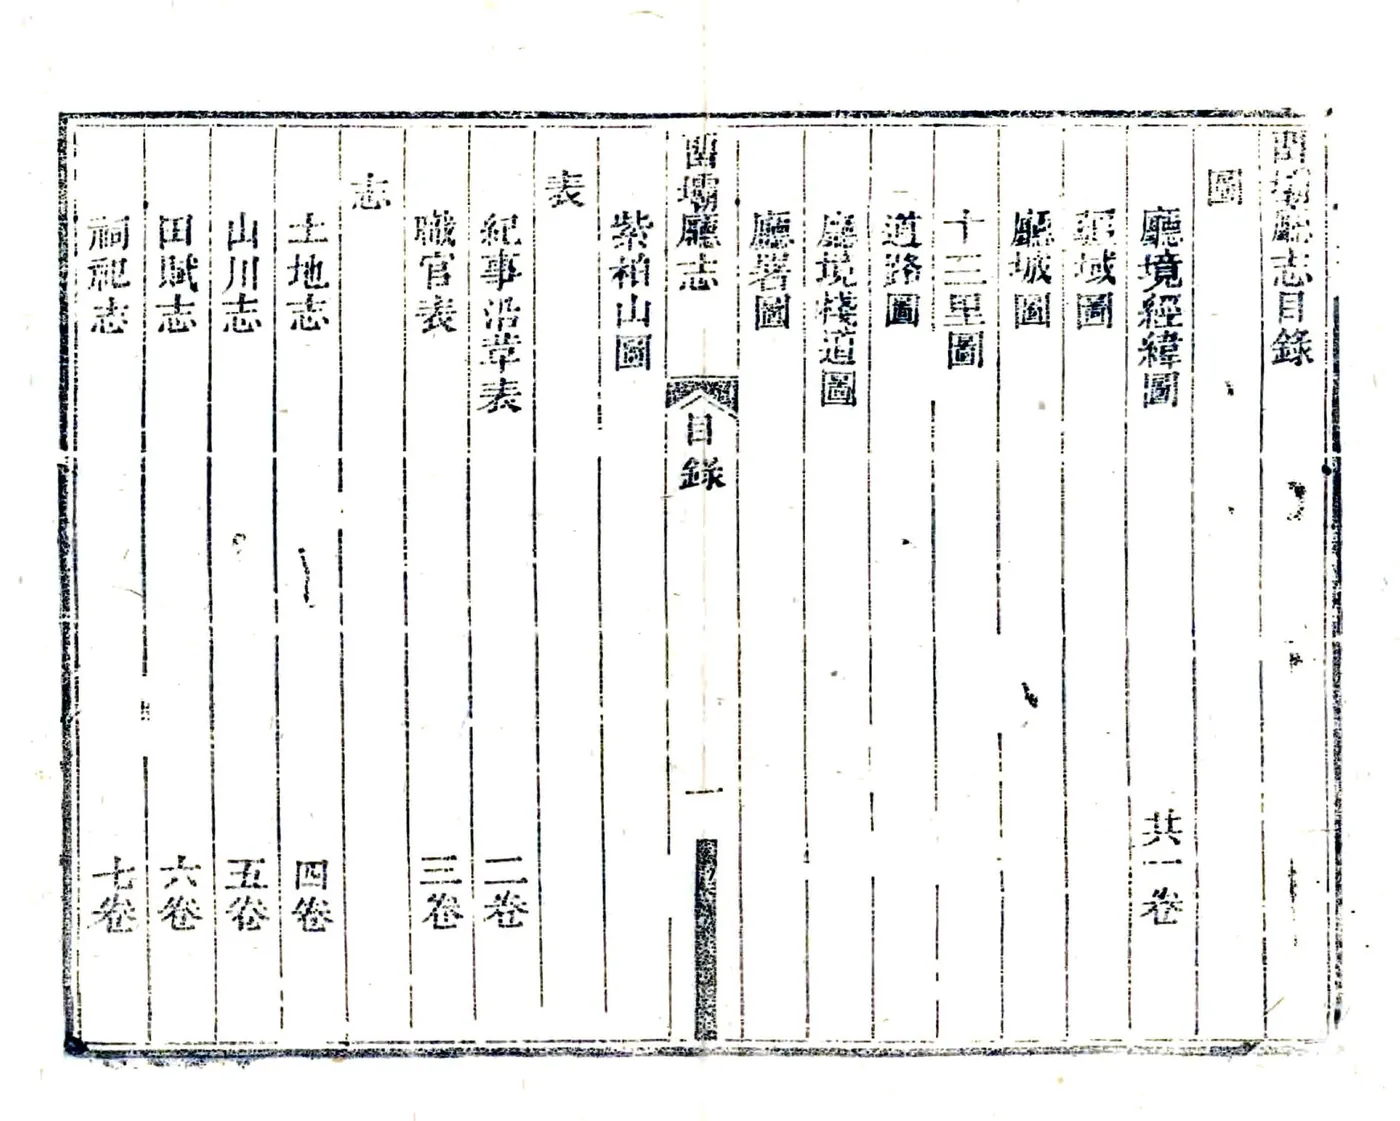 留壩廳志目錄
圖
廳境經緯圖　共一卷
疆域圖
廳城圖
十三里圖
道路圖
廳境棧道圖
廳署圖
留壩廳志
目錄
一
紫柏山圖
表
紀事沿革表　二卷
職官表　三卷
志
土地志　四卷
山川志　五卷
田賦志　六卷
祠祀志　七卷